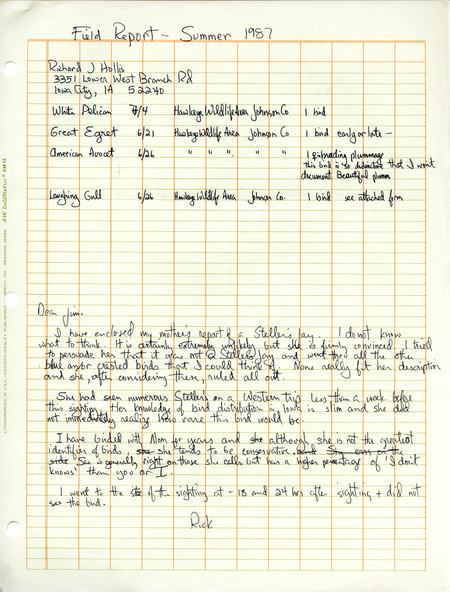 Field Report - Summer 1987
Richard J Hollis
3351 Lower West Branch Rd
Iowa City, IA 52240
White Pelican 7/4 Hawkeye Wildlife Area Johnson Co 1 bird
Great Egret 6/21 Hawkeye Wildlife Area Johnson Co 1 bird early or late -
American Avocet 6/26 " " " " " 1 in breeding plummage
this bird is so distinctive that I won't
document Beautiful plumm
Laughing Gull 6/26 Hawkeye Wildlife Area Johnson Co. 1 bird see attached form
Dear Jim.
I have enclosed my mother's report of a Steller's Jay. I do not know
what to think. It is certainly extremely unlikely but she is firmly convinced. I tried
to persuade her that it was not a Steller's Jay and went thro all the other
blue and/or crested birds that I could think of. None really fit her description
and she, after considering them, ruled all out.
She had seen numerous Steller's on a Western trip less than a week before
this sighting. Her knowledge of bird distribution in Iowa is slim and she did
not immediately realize how rare this bird would be.
I have birded with Mom for years and she although she is not the greatest
identifier of birds, she she tends to be conservative. She errs on the
side She is generally right on those she calls but has a higher percentage of 'I don't
knows' than you or I.
I went to the site of the sighting at ~ 18 and 24 hrs after sighting + did not
see the bird.
Rick